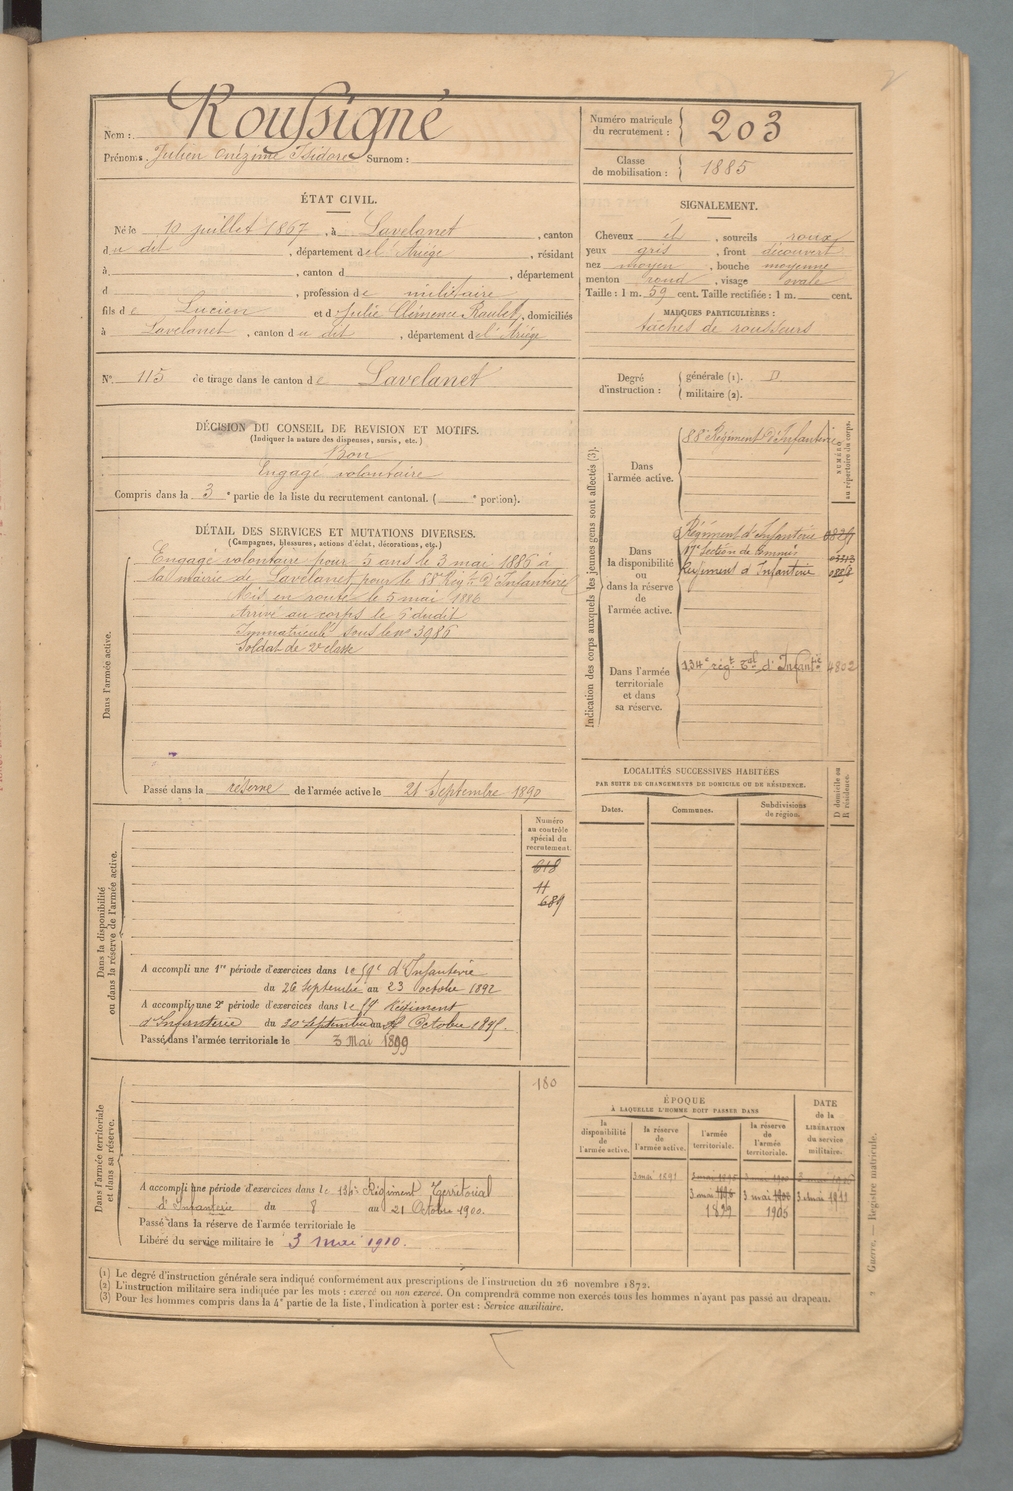 Nom : Roussigné
Prénoms. Julien Onézime Isidore Surnom :
Numéro matricule du recrutement : 203
Classe de mobilisation : 1885
ÉTAT CIVIL.
Né le 10 juillet 1867, à Lavelanet, canton
du dit, département de l'Ariège, résidant
à, canton d, département
d, profession de militaire
fils de Lucien et de Julie Clémence Raulet, domiciliés
à Lavelanet, canton du dit, département de l'Ariège
SIGNALEMENT.
Cheveux et, sourcils roux
yeux gris, front découvert
nez moyen, bouche moyenne
menton rond, visage ovale
Taille : 1 m. 59 cent. Taille rectifiée : 1 m. cent.
MARQUES PARTICULIÈRES :
tâches de rousseurs
N° 115 de tirage dans le canton de Lavelanet
Degré d'instruction : générale (1). militaire (2).
DÉCISION DU CONSEIL DE REVISION ET MOTIFS.
(Indiquer la nature des dispenses, sursis, etc.)
Bon
Engagé volontaire
Compris dans la 3e partie de la liste du recrutement cantonal. ( e portion).
DÉTAIL DES SERVICES ET MUTATIONS DIVERSES.
(Campagnes, blessures, actions d'éclat, décorations, etc.)
Dans l'armée active.
Engagé volontaire pour 5 ans le 3 mai 1886 à
la mairie de Lavelanet pour le Régt D'Infanterie
Mis en route le 5 mai 1886
Arrivé au corps le dudit
Immatriculé sous le no 3986
Soldat de 2e classe
Passé dans la réserve de l'armée active le 21 Septembre 1890
Indication des corps auxquels les jeunes gens sont affectés (3).
NUMÉRO au répertoire du corps.
Dans l'armée active.
88e Régiment d'Infanterie
Dans la disponibilité ou dans la réserve de l'armée active.
Régiment d'Infanterie
17e Section de Commis
Régiment d'Infanterie
Dans l'armée territoriale et dans sa réserve.
134e régt Tal d'Infantie 4802
LOCALITÉS SUCCESSIVES HABITÉES
PAR SUITE DE CHANGEMENTS DE DOMICILE OU DE RÉSIDENCE.
Dates. Communes. Subdivisions de région.
D domicile ou R résidence.
Dans la disponibilité ou dans la réserve de l'armée active.
Numéro au contrôle spécial du recrutement.
618
11
689
A accompli une 1re période d'exercices dans le 59e d'Infanterie
du 26 Septembre au 23 octobre 1892
A accompli une 2e période d'exercices dans le 59 Régiment
d'Infanterie du 30 Septembre au Octobre 1895.
Passé dans l'armée territoriale le 3 Mai 1899
Dans l'armée territoriale et dans sa réserve.
180
A accompli une période d'exercices dans le 134e Régiment Territorial
d'Infanterie du 8 au 21 Octobre 1900.
Passé dans la réserve de l'armée territoriale le
Libéré du service militaire le 3 mai 1910.
ÉPOQUE
À LAQUELLE L'HOMME DOIT PASSER DANS
la disponibilité de l'armée active.
la réserve de l'armée active.
l'armée territoriale.
la réserve de l'armée territoriale.
DATE de la LIBÉRATION du service militaire.
3 mai 1891
3 mai 1896 3 mai 1900 3 mai 1911
1899 1905
(1) Le degré d'instruction générale sera indiqué conformément aux prescriptions de l'instruction du 26 novembre 1872.
(2) L'instruction militaire sera indiquée par les mots : exercé ou non exercé. On comprendra comme non exercés tous les hommes n'ayant pas passé au drapeau.
(3) Pour les hommes compris dans la 4e partie de la liste, l'indication à porter est : Service auxiliaire.
Guerre. — Registre matricule.